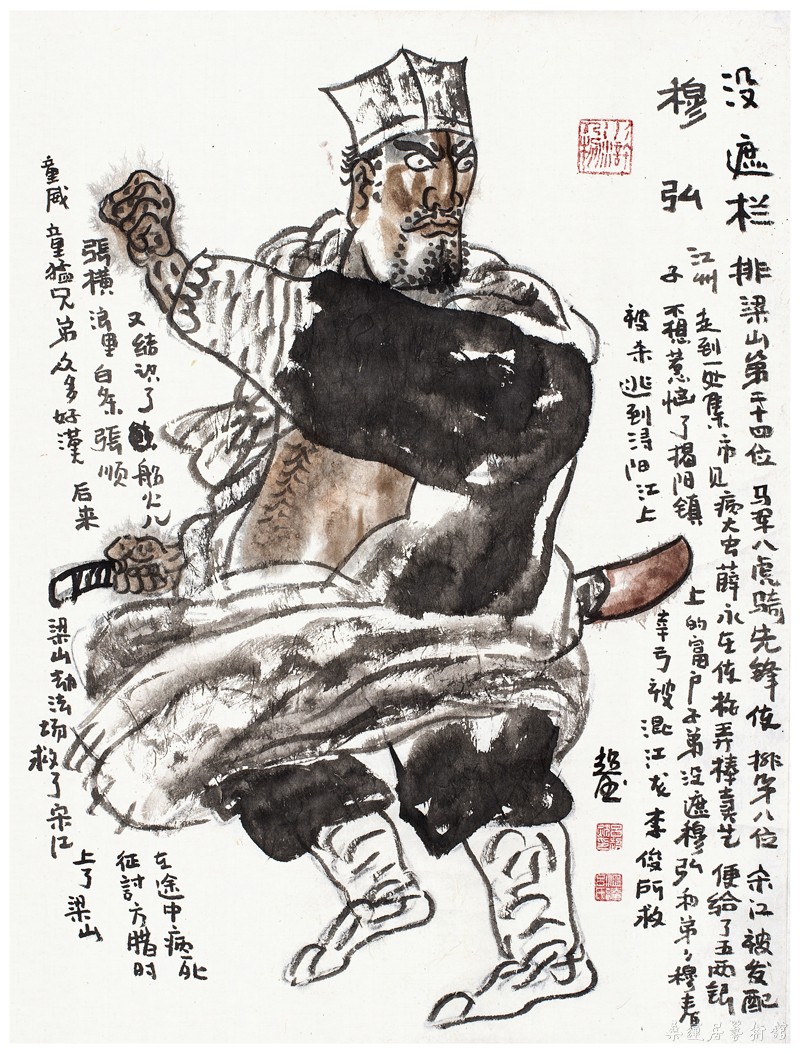 没遮栏
穆弘
排梁山第二十四位 马军八虎骑先锋使 排第八位 宋江被发配
江州 走到一处集市见病大虫薛永在使枪弄棒卖艺 便给了五两銀
子 不想惹恼了揭阳镇上的富户子弟没遮穆弘和弟弟穆春
被杀 逃到浔阳江上 幸亏被混江龙李俊所救
又结识了船火儿
張横 浪里白条 張顺
童威 童猛兄弟众多好漢 后来
梁山劫法场救了宋江
上了梁山
征討方腊时
在途中病死